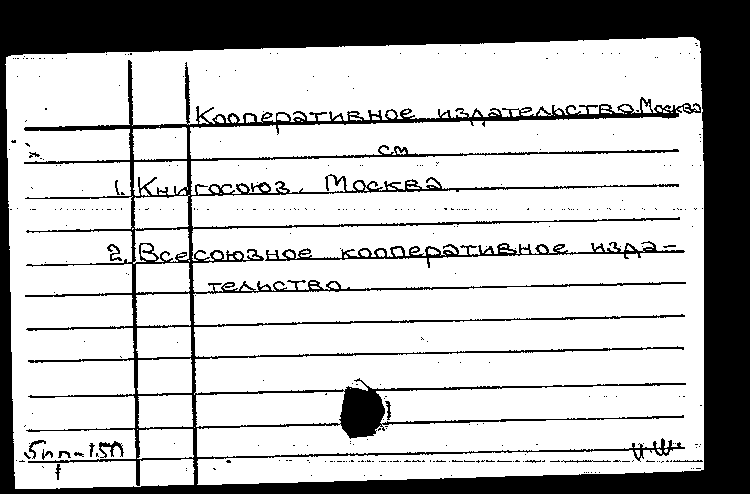 Кооперативное издательство. Москва
см
1. Книгосоюз. Москва.
2. Всесоюзное кооперативное изда=
тельство.